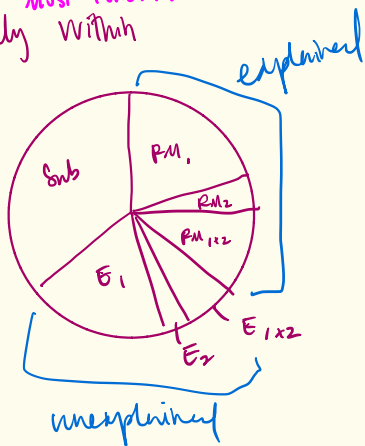 ly within
explained
RM₁
Sub
RM₂
RM₁ₓ₂
E₁
E₁ₓ₂
E₂
unexplained